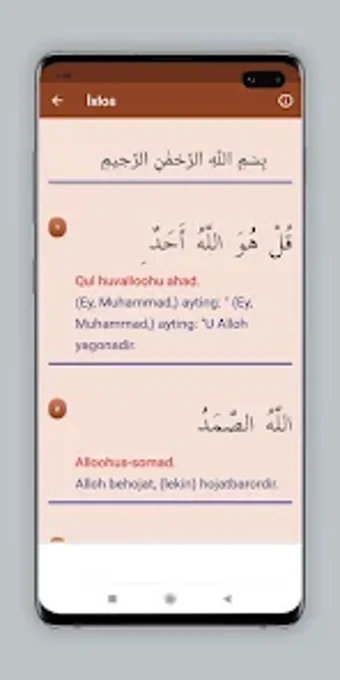 Ixlos
بِسْمِ اللَّهِ الرَّحْمَٰنِ الرَّحِيمِ
قُلْ هُوَ اللَّهُ أَحَدٌ
Qul huvalloohu ahad.
(Ey, Muhammad,) ayting: " (Ey,
Muhammad,) ayting: "U Alloh
yagonadir.
اللَّهُ الصَّمَدُ
Alloohus-somad.
Alloh behojat, (lekin) hojatbarordir.